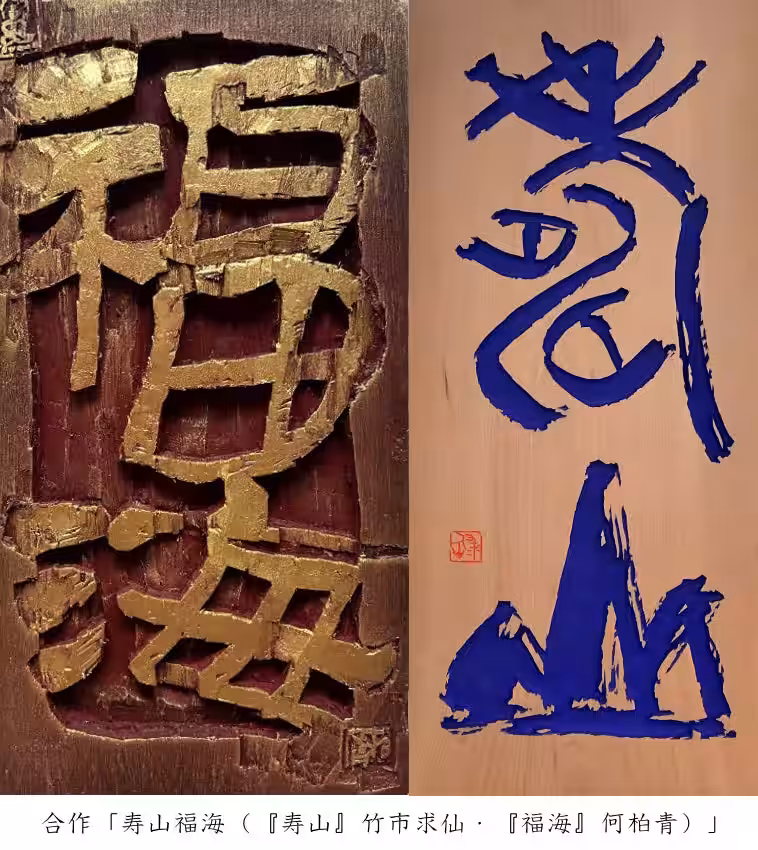 寿山
福海
合作「寿山福海（『寿山』竹市求仙・『福海』何柏青）」